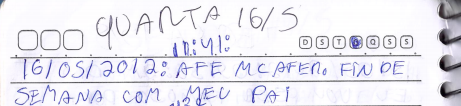 QUARTA 16/5
11:41:
D S T Q Q S S
16/05/2012: AFE MCAFER. FIN DE
SEMANA COM MEU PAI